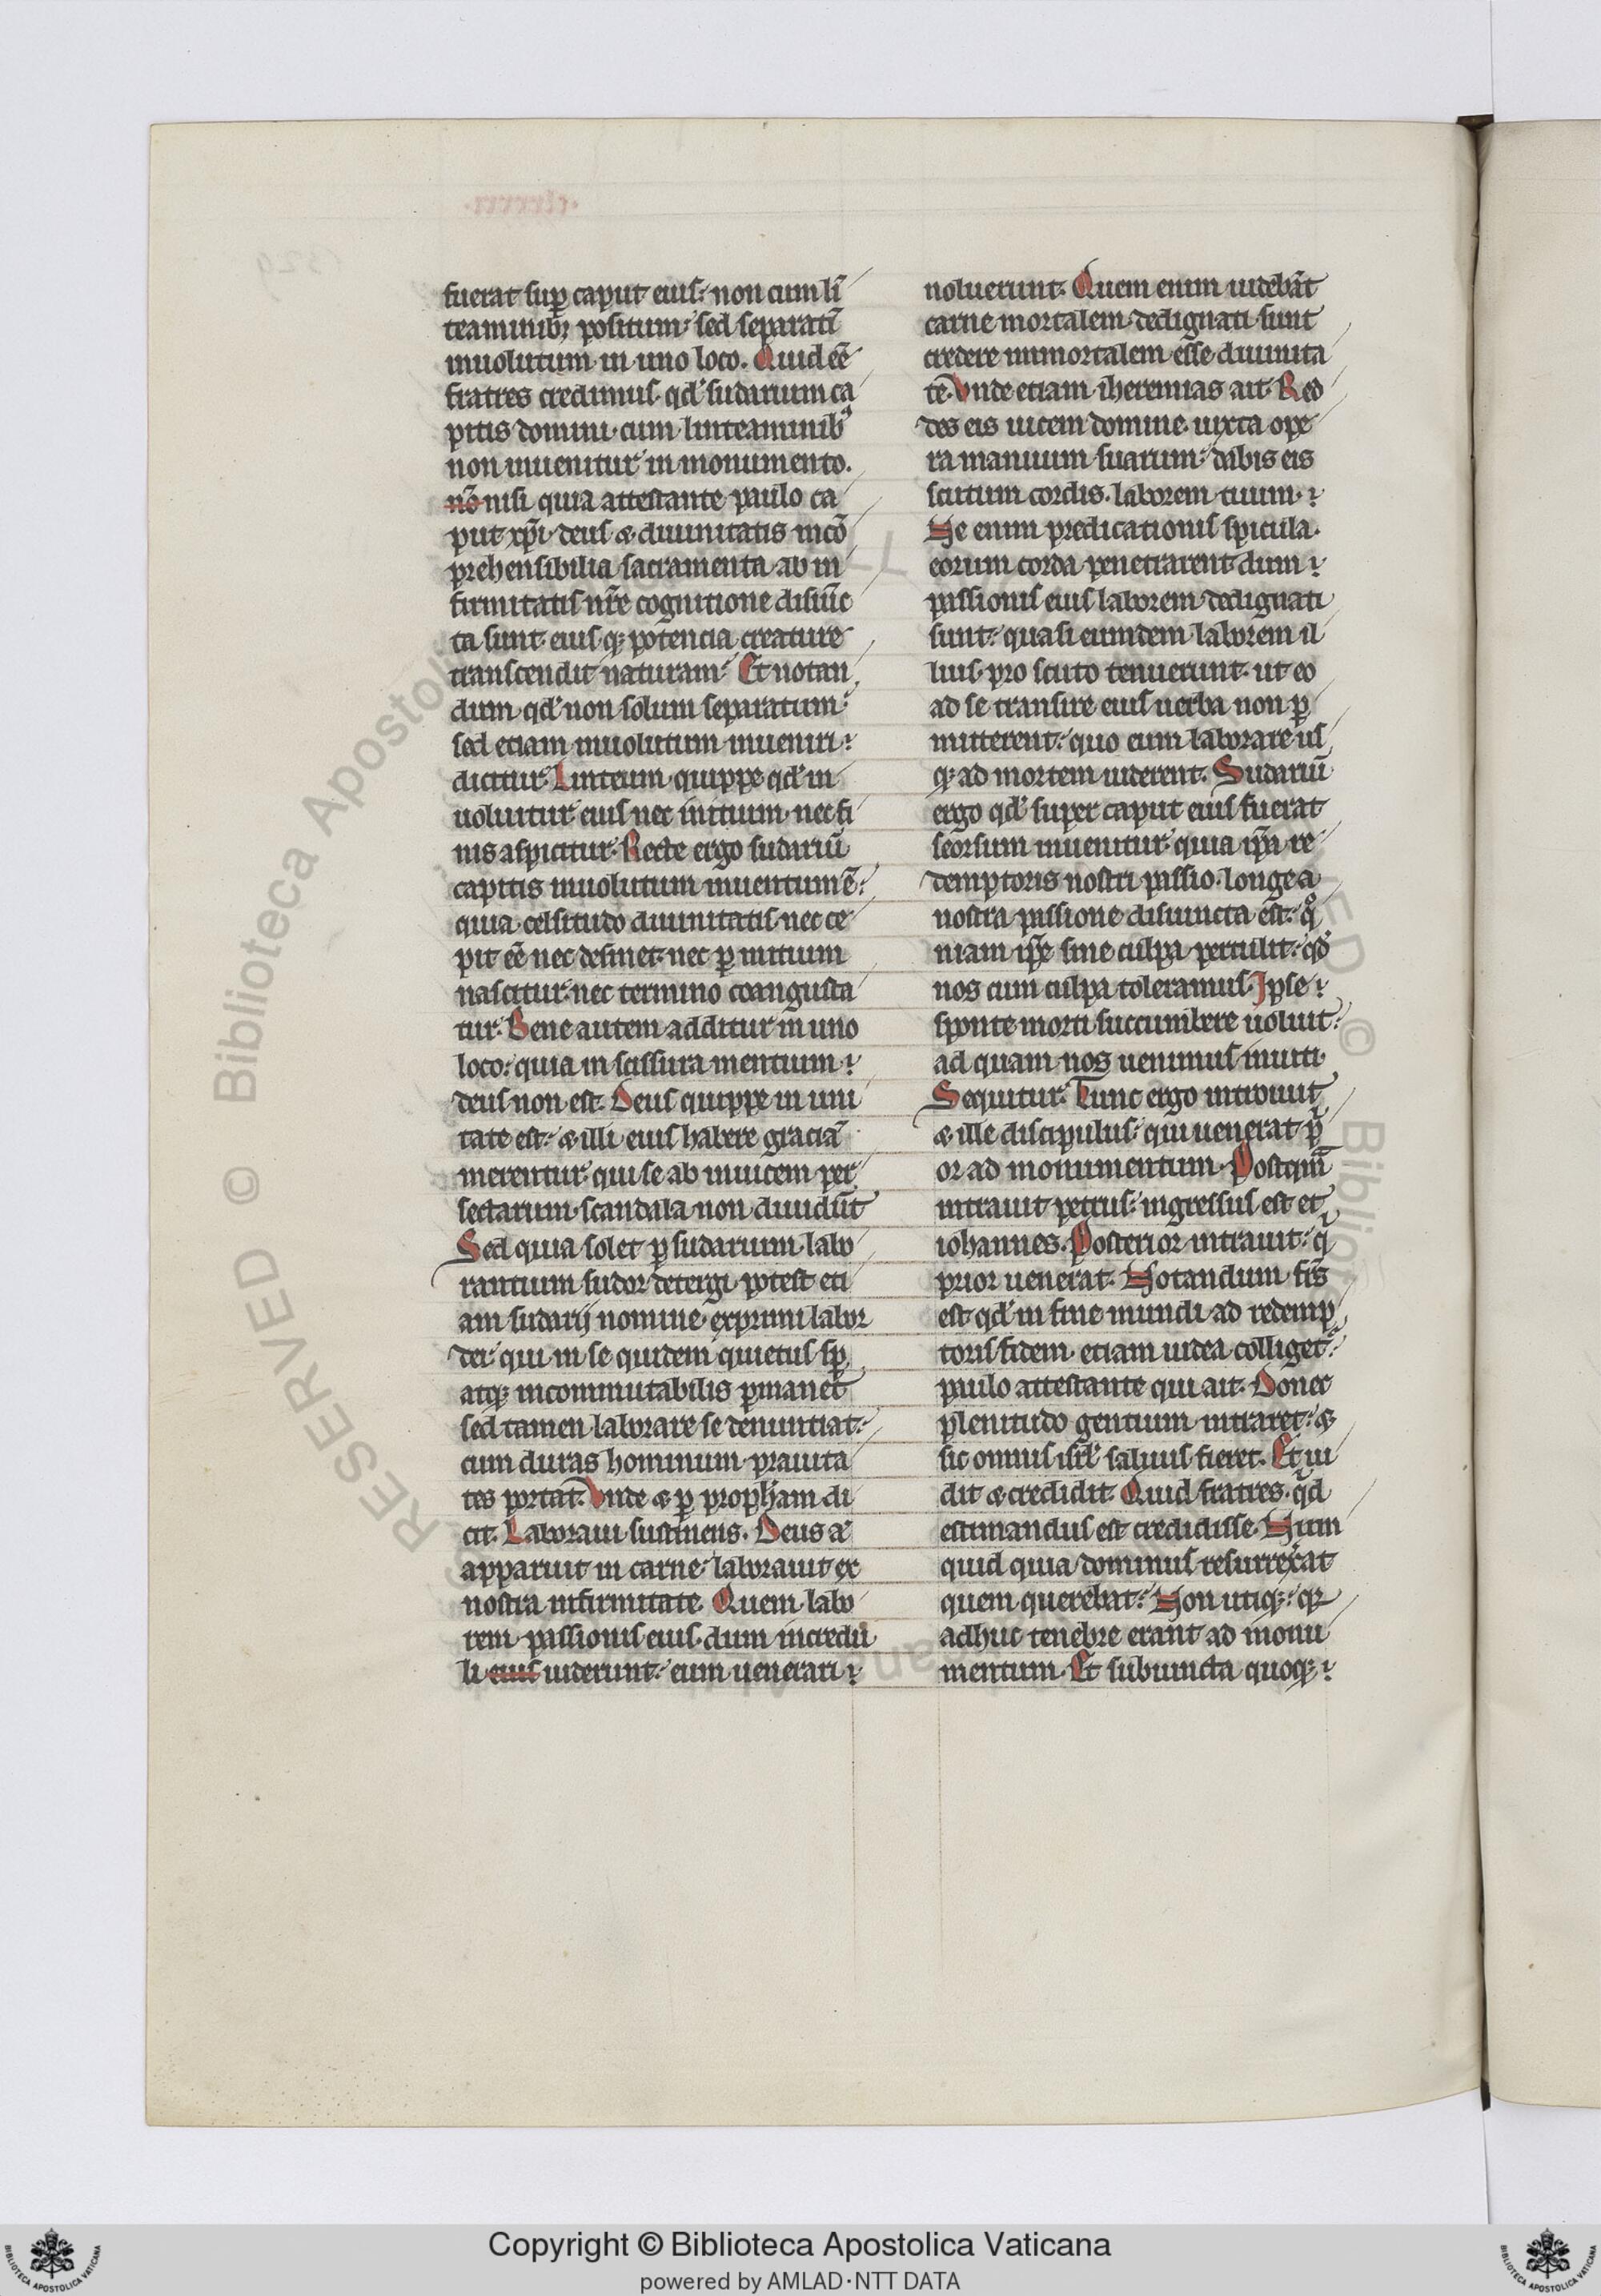 fuerat sup̲ caput eius: non cum li̅
teaminib; positum: sed separati̅
inuolutum in uno loco. Quid ee̅
fratres credimus qd' sudarium ca
pitis domini cum linteaminib'
non inuenitur in monumento.
no̅ nisi quia attestante paulo ca
put xp̅i deus & diuinitatis inco̅
prehensibilia sacramenta ab in
firmitatis nr̅e cognitione disiu̅c
ta sunt eius q; potencia creature
transcendit naturam: Et notan
dum qd' non solum separatum:
sed etiam inuolutum inueniri:
dicitur. Linteum quippe qd' in
uoluitur eius nec initium nec fi
nis aspicitur. Recte ergo sudariu̅
capitis inuolutum inuentum e̅:
quia celsitudo diuinitatis nec ce
pit ee̅ nec desinet nec p̲ initium
nascitur nec termino coangusta
tur. Bene autem additur in uno
loco: quia in scissura mentium:
deus non est. Deus quippe in uni
tate est: & illi eius habere gracia̅
merentur qui se ab inuicem per
sectarum scandala non diuidu̅t
Sed quia solet p̲ sudarium labo
rantium sudor detergi potest eti
am sudarij nomine exprimi labor
dei qui in se quidem quietus sp̲
atq; incommutabilis p̲manet
sed tamen laborare se denuntiat:
cum duras hominum prauita
tes portat. Vnde & p̲ proph̅am di
cit. Laboraui sustinens. Deus a̅
apparuit in carne laborauit ex
nostra infirmitate. Quem labo
rem passionis eius dum incredu
li eius uiderunt: eum uenerari:
noluerunt. Quem enim uideba̅t
carne mortalem dedignati sunt
credere immortalem esse diuinita
te̅. Vnde etiam iheremias ait. Red
des eis uicem domine iuxta ope
ra manuum suarum: dabis eis
scutum cordis laborem tuum:
Ne enim predicationis spicula
eorum corda penetrarent dum:
passionis eius laborem dedignati
sunt: quasi eumdem laborem il
lius pro scuto tenuerunt. ut eo
ad se transire eius uerba non p̲
mitterent: quo eum laborare us
q; ad mortem uiderent. Sudariu̅
ergo qd' super caput eius fuerat
seorsum inuenitur quia ip̅a re
demptoris nostri passio longe a
nostra passione disiuncta est: qo
niam ip̅e sine culpa pertulit: qd'
nos cum culpa toleramus. Ipse:
sponte morti succumbere uoluit:
ad quam nos uenimus inuiti.
Sequitur. Tunc ergo introiuit
& ille discipulus: qui uenerat pi
or ad monumentum. Postqm̅
intrauit petrus: ingressus est et
iohannes. Posterior intrauit: qi
prior uenerat. Notandum fr̅s
est qd' in fine mundi ad redemp
toris fidem etiam iudea colliget:
paulo attestante qui ait. Donec
plenitudo gentium intraret: &
sic omnis isrl' saluus fieret. Et ui
dit & credidit. Quid fratres qid
estimandus est credidisse. Num
quid quia dominus resurrexerat
quem querebat: Non utiq;: qr
adhuc tenebre erant ad monu
mentum. Et subiuncta quoq;:
RESERVED © Biblioteca Apostolica
Copyright © Biblioteca Apostolica Vaticana
powered by AMLAD·NTT DATA